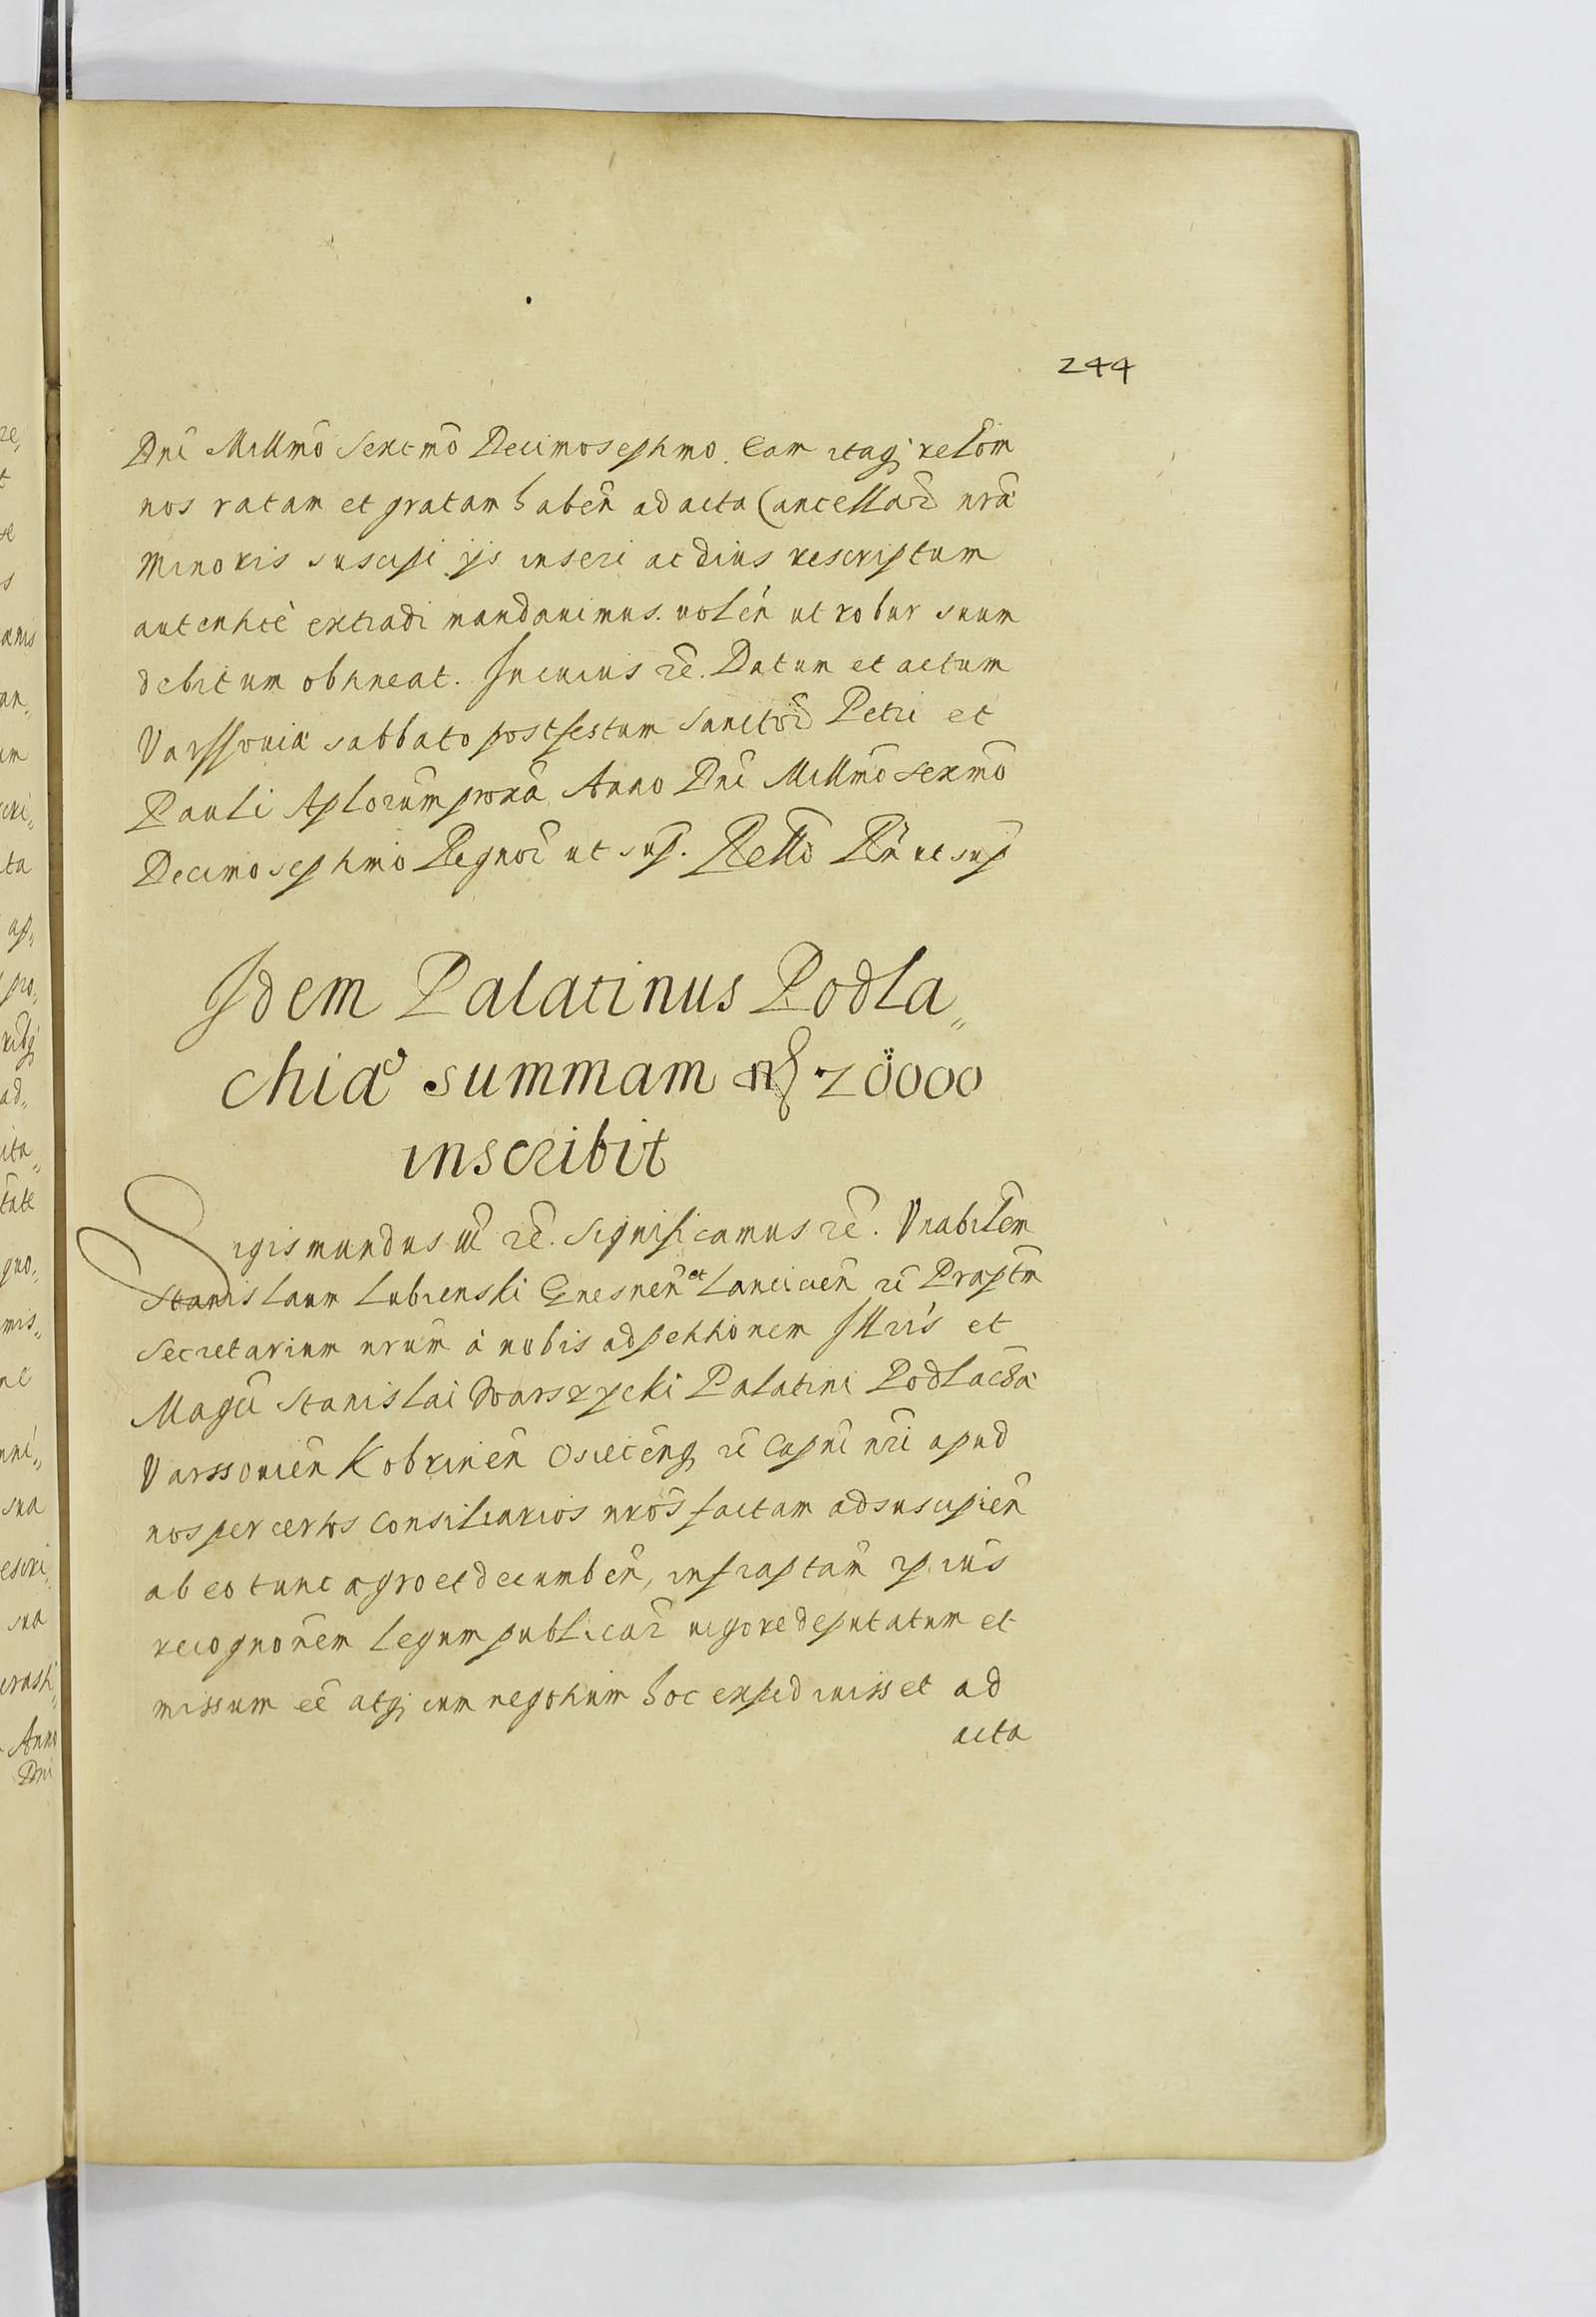 244
Dnī Mıllmō Sextmō Decimoseptimo. Eam itaq; relōm
nos ratam et gratam habeñ ad acta Cancellar̃ nrã
minoris suscipi ijs inseri ac eius rescriptum
autenticè extradi mandauimus. uoleñ ut robur suum
debitum obtineat. In cuius rē. Datum et actum
Varssouiæ sabbato post festum Sanctor̃ Petri et
Pauli Aplorum proxã Anno Dnī Millmō sexmō
Decimo septimo Regnor̃ ut sup. Rello Rñ ut sup
Idem Palatinus Podla„
chiæ summam 20000
inscribit
Sigismundus III rē. Significamus rē. Vnabilem
Stanislaum Lubienski Gnesneñ et Lancicieñ rē Præptm
Secretarium nrum à nobis ad petitionem Illris et
Magci Stanislai Warszycki Palatini Podlachiæ
Varssouieñ Kobrineñ Osiecenq; rē Capnī nri apud
nos per certos consiliarios nros factam ad suscipieñ
ab eo tunc ægro et decumbeñ, infraptam ip̃ius
recognonem Legum publicar̃ uigore deputatum et
missum eē atq; cum negotium hoc expediuisset ad
acta